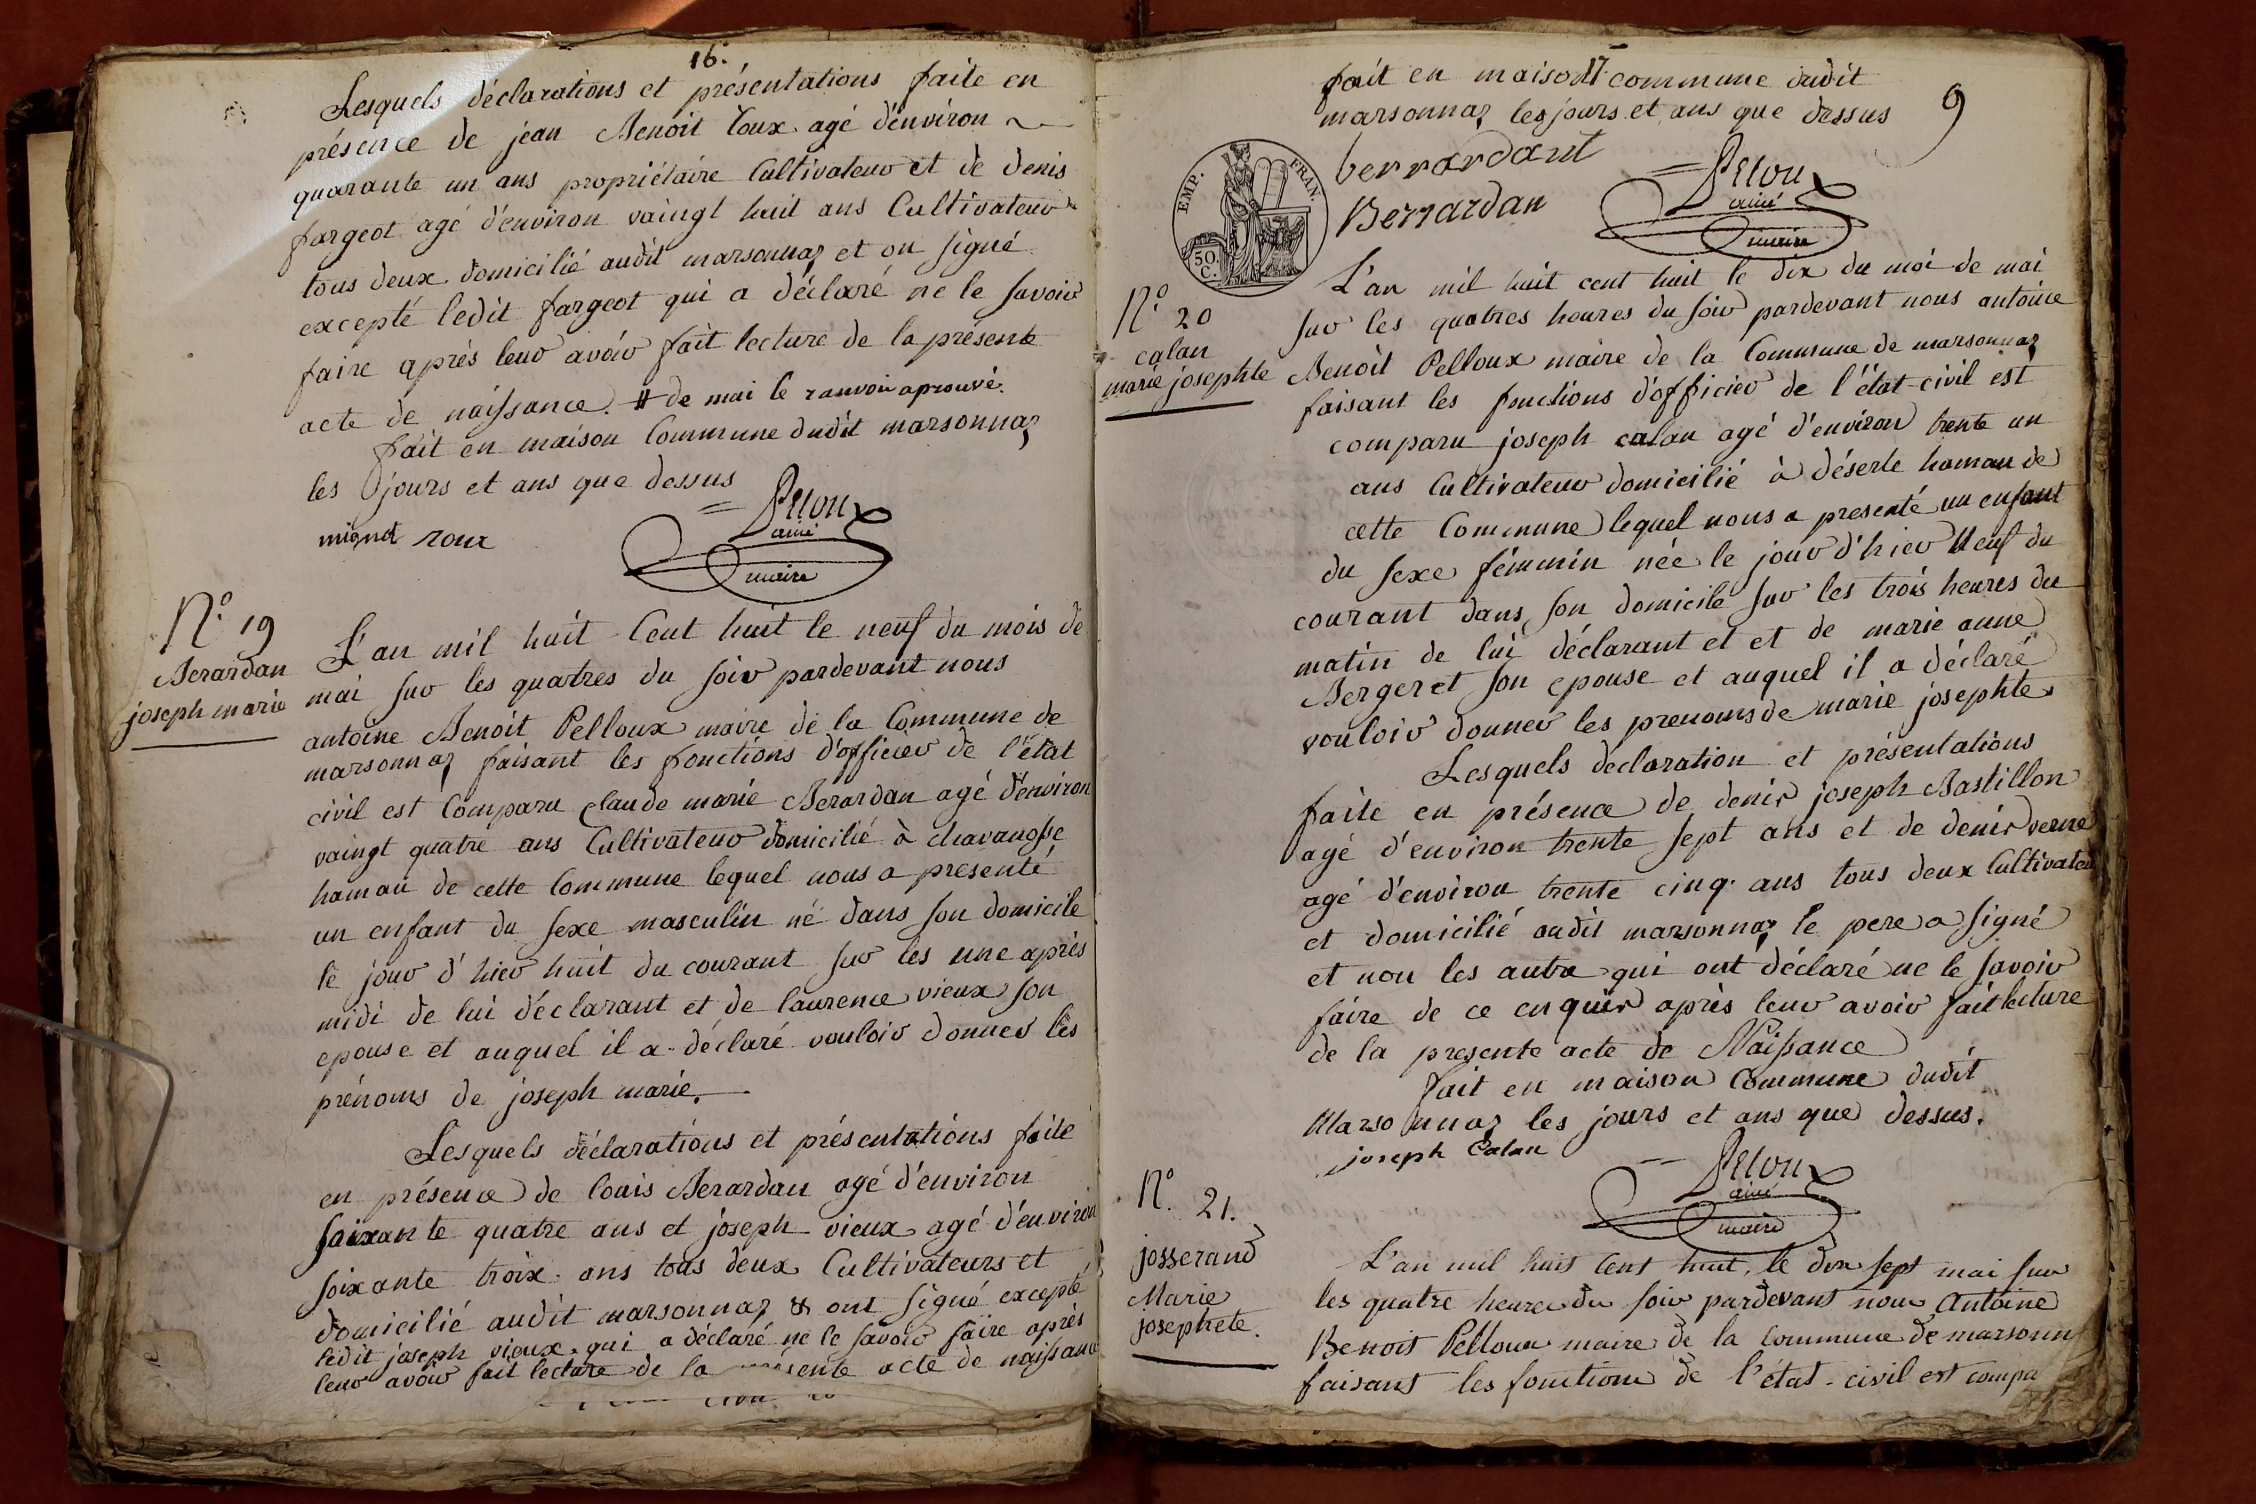 16.
Lesquels déclarations et présentations faite en
présence de jean Benoit Roux agé d'énviron
quarante un ans propriétaire Cultivateur et de denis
fargeot agé d'environ vaingt huit ans Cultivateur
tous deux domicilié audit marsonnaz et on signé
excepté ledit fargeot qui a déclaré ne le savoir
faire après leur avoir fait lecture de la présente
acte de naissance. # de mai le ranvoir aprouvé.
fait en maison Commune dudit marsonnaz
les jours et ans que dessus
mignot roux
Pelou
ainé
maire
N.o 19
Berardan
joseph marie
L'an mil huit Cent huit le neuf du mois de
mai sur les quatres du soir pardevant nous
antoine Benoit Pelloux maire de la Commune de
marsonnaz faisant les fonctions d'officier de l'état
civil est Comparu Claude marie Berardan agé d'environ
vaingt quatre ans Cultivateur domicilié à chavangsse
hamau de cette Commune lequel nous a presenté
un enfant du sexe masculin né dans son domicile
le jour d'hier huit du courant sur les une après
midi de lui déclarant et de laurence vieux son
epouse et auquel il a déclaré vouloir donner les
prénoms de joseph marie.
Lesquels déclarations et présentations faite
en présence de louis Berardan agé d'environ
soixante quatre ans et joseph vieux agé d'environ
soixante troix ans tous deux Cultivateurs et
domicilié audit marsonnaz & ont signé excepté
ledit joseph vieux qui a déclaré ne le savoir faire après
leur avoir fait lecture de la présente acte de naissance
17
fait en maison commune dudit
marsonnaz les jours et ans que dessus
9
berrardant
Berrardan
Pelou
ainé
maire
EMP. FRAN.
50. C.
N.o 20
calan
marie josephte
L'an mil huit cent huit le dix du moi de mai
sur les quatres heures du soir pardevant nous antoine
Benoit Pelloux maire de la Commune de marsonnaz
faisant les fonctions d'officier de l'état civil est
comparu joseph calan agé d'environ trente un
ans Cultivateur domicilié à déserte hamau de
cette Commune lequel nous a presenté un enfant
du sexe féminin née le jour d'hier Neuf du
courant dans son domicile sur les trois heures du
matin de lui déclarant et et de marie anne
Bergeret son epouse et auquel il a déclaré
vouloir donner les prenoms de marie josephte
Lesquels déclaration et présentations
faite en présence de denis joseph Bastillon
agé d'environ trente sept ans et de denis verne
agé d'environ trente cinq ans tous deux Cultivateur
et domicilié audit marsonnaz le pere a signé
et non les autre qui ont déclaré ne le savoir
faire de ce enquir après leur avoir fait lecture
de la presente acte de Naissance
fait en maison Commune dudit
Marsonnaz les jours et ans que dessus.
joseph Calan
Pelou
ainé
maire
N.o 21.
josserand
Marie
josephete.
L'an mil huit Cent huit, le dix sept mai sur
les quatre heures du soir pardevant nous Antoine
Benoit Pelloux maire de la Commune de marsonn
faisant les fonctions de l'état-civil est compa